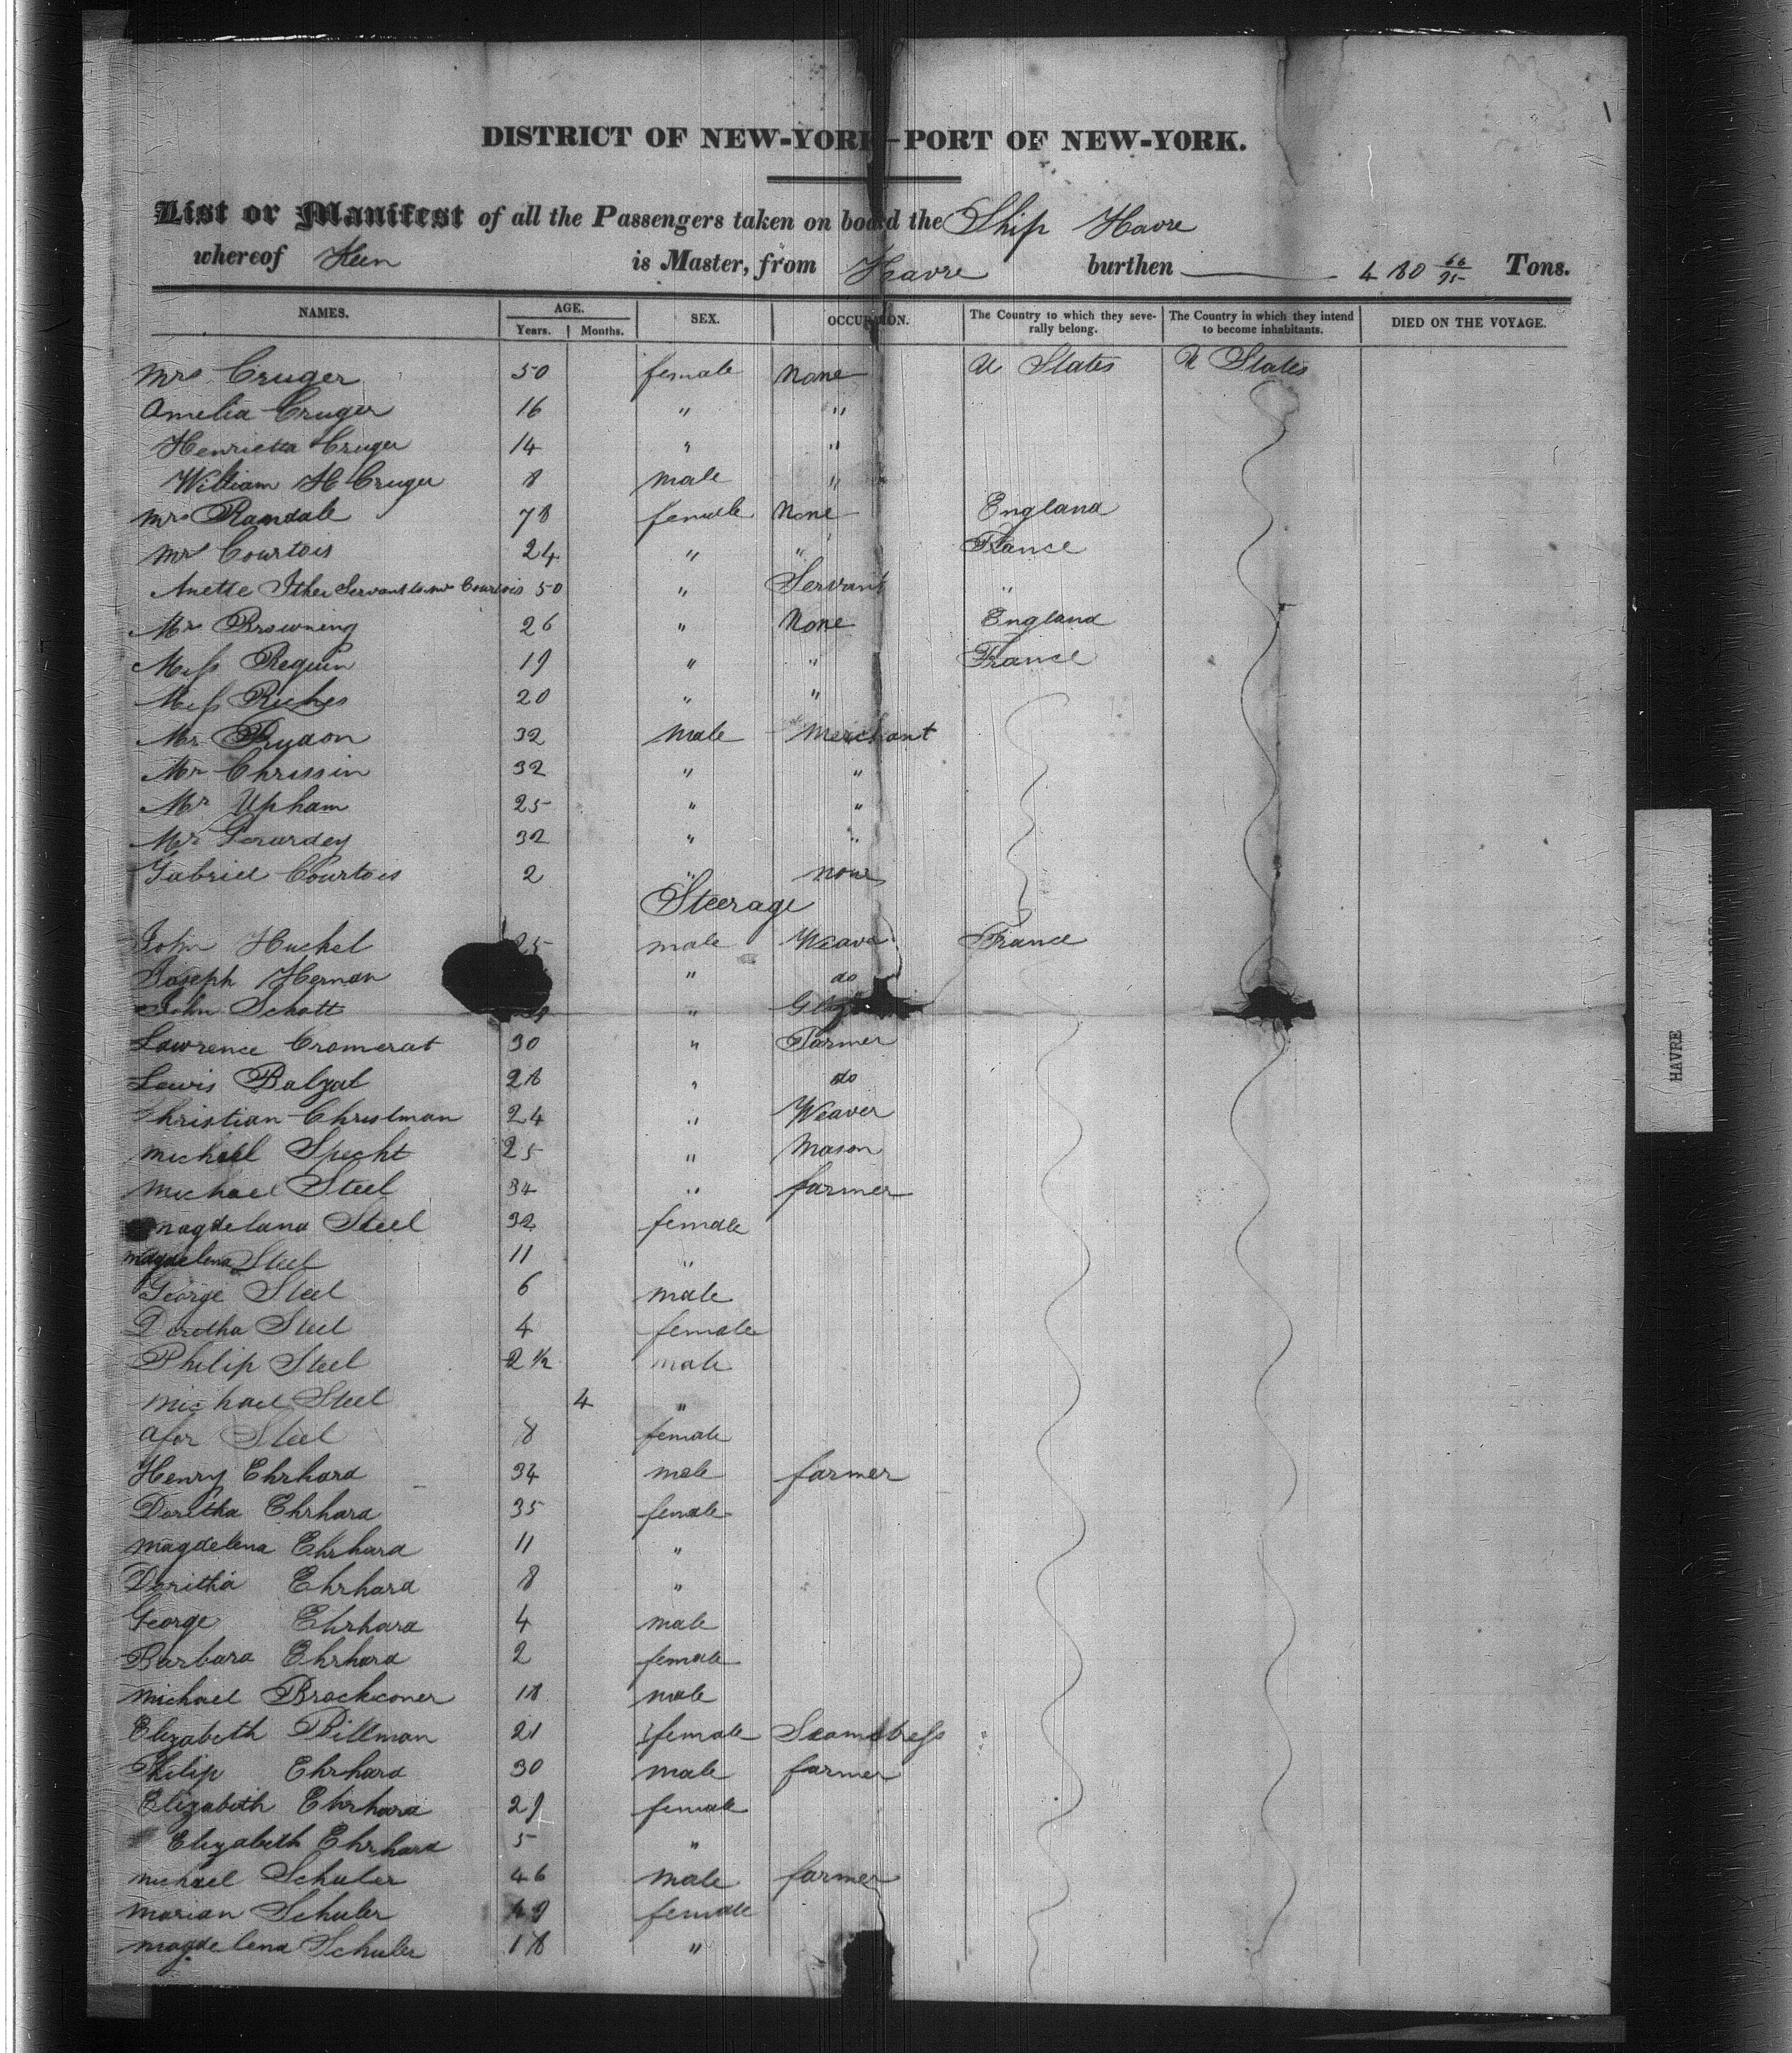 1
DISTRICT OF NEW-YORK—PORT OF NEW-YORK.
List or Manifest of all the Passengers taken on board the Ship Havre
whereof Keen is Master, from Havre burthen 480 66/95 Tons.
NAMES. AGE. Years. Months. SEX. OCCUPATION. The Country to which they severally belong. The Country in which they intend to become inhabitants. DIED ON THE VOYAGE.
Mrs Cruger 50 female None U States U States
Amelia Cruger 16 " "
Henrietta Cruger 14 " "
William H Cruger 8 male "
Mrs Randale 78 female None England
Mrs Courtois 24 " " France
Anette Servant to Mrs Courtois 50 " Servant "
Mrs Browning 26 " None England
Miss Requin 19 " " France
Miss Riches 20 " "
Mr Rydon 32 Male Merchant
Mr Chrissin 32 " "
Mr Upham 25 " "
Mr Gerardey 32 " "
Gabriel Courtois 2 " none
Steerage
John Huchel 25 male Weaver France
Joseph Herman " do
John Schott "
Lawrence Cromerat 30 " Farmer
Lewis Balzal 28 " do
Christian Christman 24 " Weaver
Michael Specht 25 " Mason
Michael Steel 34 " farmer
Magdelana Steel 32 female
Magdelena Steel 11 "
George Steel 6 male
Doretha Steel 4 female
Philip Steel 2 1/2 male
Michael Steel 4 "
Steel 8 female
Henry Ehrhard 34 male farmer
Doritha Ehrhard 35 female
Magdelena Ehrhard 11 "
Doritha Ehrhard 8 "
George Ehrhard 4 male
Barbara Ehrhard 2 female
Michael Brockconer 18 male
Elizabeth Billman 21 female Seamstress "
Philip Ehrhard 30 male farmer
Elizabeth Ehrhard 29 female
Elizabeth Ehrhard 5 "
Michael Schuler 46 male farmer
Marian Schuler 49 female
Magdelena Schuler 18 "
HAVRE